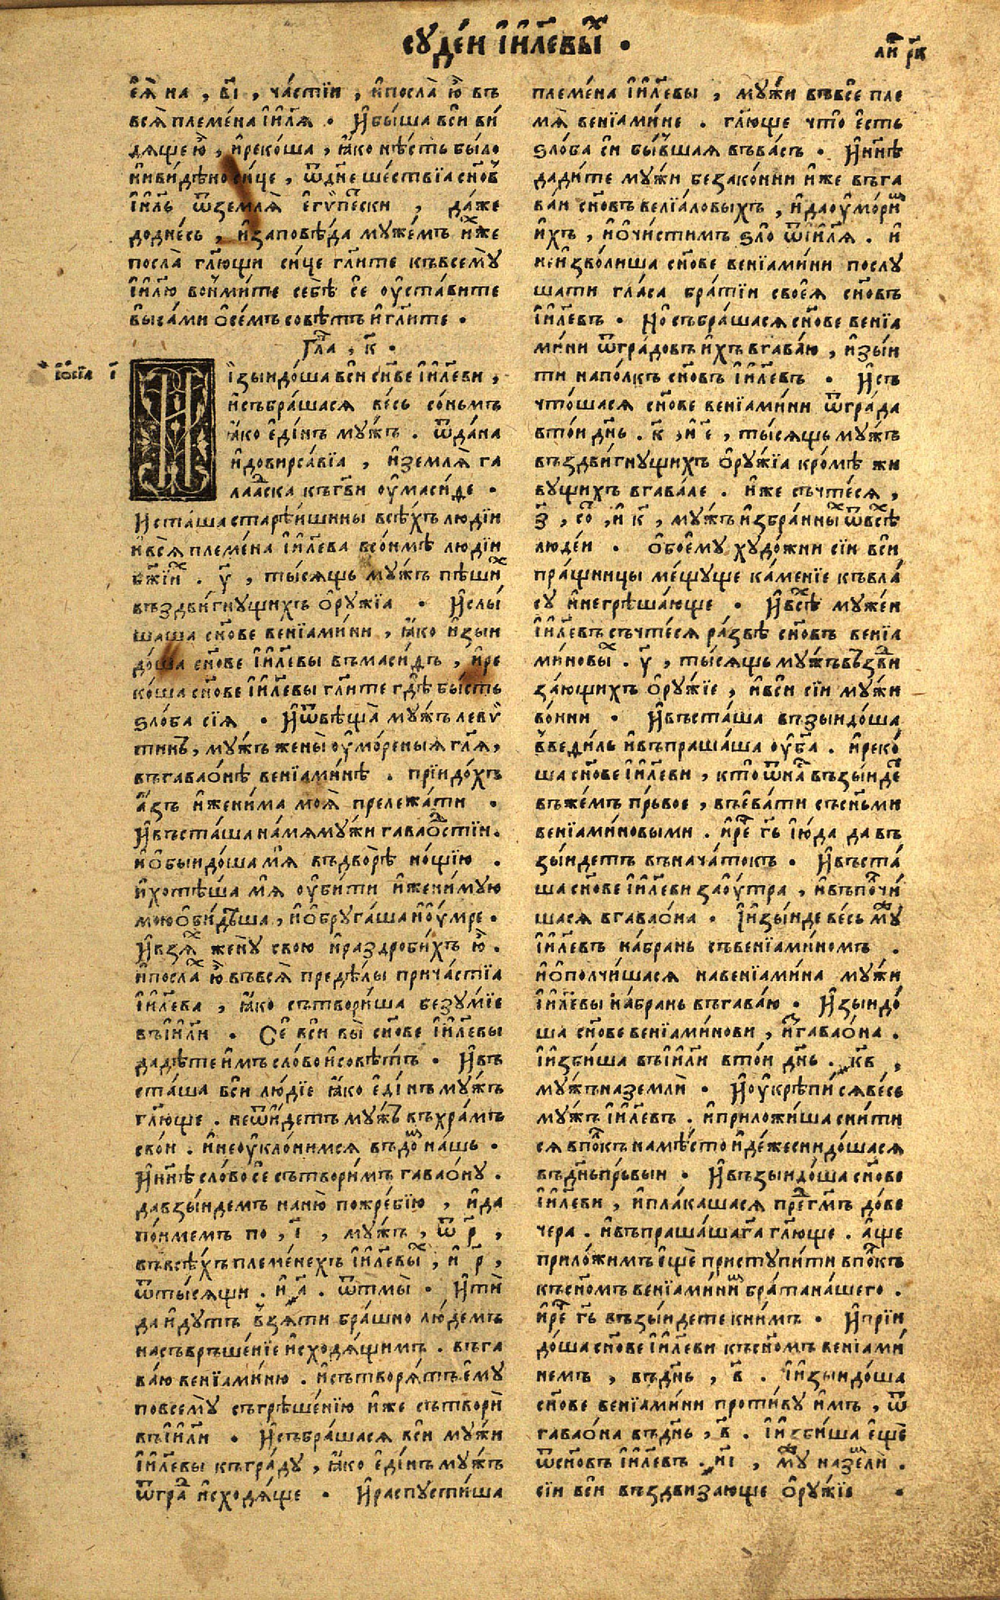 суде́й і҆и҃левы́х .
ли рк
е҆я̀ на , в҃і , ча́стїи , и҆посла̀ ю҆̀ въ
вся̀ племе́на і҆и҃ля . И҆бы́ша вси ви́
дяще ю҆̀ , и҆реко́ша , ꙗ҆́ко нѣ́сть бы́ло
нивидѣно си́це , ѿдн҃е ше́ствїа сн҃о́в
і҆и҃ль ѿземля̀ є҆гѵ́пески , да́же
додне́сь , и҆заповѣ́да муже́мъ и҆́же
посла̀ гл҃ющи си́це гл҃ите къвсемꙋ̀
і҆и҃лю вонми́те себѣ̀ сѐ ᲂу҆ста́вите
высами ѻ҆се́мъ совѣ́тъ и҆гл҃ите .
Гла̀ , к҃ .
І҆ѡ҆сїа і҃
И҆зыидо́ша вси сн҃ве і҆и҃леви ,
и҆събра́шася ве́сь со́ньмъ
ꙗ҆́ко є҆ди́нъ мꙋ́жъ . ѿда́на
и҆довирса́вїа , и҆земля̀ га
лаа́дска къгв҃и ᲂу҆маси́де .
И҆ста́ша старѣ́ишины всѣ́хъ людїи
и҆вся̀ племе́на і҆и҃лева всо́нмѣ людїи
бж҃їих . у҃ , ты́сящь мꙋ́жъ пѣ́ших
въздви́гнущихъ ѻ҆рꙋ́жїа . И҆слы́
шаша сн҃ове венїами́ни , ꙗ҆́ко и҆зыи
до́ша сн҃ове і҆и҃левы въмаси́дъ , и҆ре
ко́ша сн҃ове і҆и҃левы гл҃ите гдѣ̀ бы́сть
ѕло́ба сїя . И҆ѿвѣща̀ мꙋ́жъ левѵ̀
тинъ , мꙋ́жъ жены̀ ᲂу҆мо́реныя гл҃я ,
въгаваѻ́нѣ венїами́нѣ . прїидо́хъ
а҆́зъ и҆жени́ма моя̀ прележа́ти .
И҆въста́ша нами́ мꙋ́жи гаваѻ́стїи .
и҆ѻ҆быидо́ша мя̀ въдворѣ̀ но́щїю .
и҆хотѣ́ша мя̀ ᲂу҆би́ти и҆жени́мꙋю
мою ѻ҆би́дѣша , и҆ѻ҆бруга́ша и҆ᲂу҆́мре .
И҆взя́х женꙋ̀ свою и҆раздроби́хъ ю҆̀ .
и҆посла́х ю҆̀ въвся̀ предѣ́лы прича́стїа
і҆и҃лева , ꙗ҆́ко сътвори́ша безꙋ́мїе
въі҆и҃ли . Сѐ вси вы̀ сн҃ове і҆и҃левы
дади́те и҆́мъ сло́во и҆совѣ́тъ . И҆въ
ста́ша вси лю́дїе ꙗ҆́ко є҆ди́нъ мꙋ́жъ
гл҃юще . неѿи́детъ мꙋ́жъ въхра́мъ
сво́и . и҆неᲂу҆кло́нимся въдо́м на́шъ .
И҆нн҃ѣ сло́во се сътвори́мъ гаваѻ́нꙋ .
давзы́идемъ наню̀ пожре́бїю , и҆да
по́имемъ по , і҃ , мꙋ́жъ , ѿ р҃ ,
въвсѣ́хъ племе́нехъ і҆и҃левых , и҆ р҃ ,
ѿты́сящи . и҆ а҃ . ѿтмы̀ . И҆тїи
да и҆дꙋ́тъ взя́ти бра́шно лю́демъ
насъврьше́нїе и҆сходя́щимъ . въга
ва́ю венїами́ню . и҆сътворя́тъ є҆мꙋ
повсемꙋ̀ съгрѣше́нїю и҆́же сътвори̾
въі҆и҃ли . И҆събра́шася вси мꙋ́жи
і҆и҃левы къгра́дꙋ , ꙗ҆́ко є҆ди́нъ мꙋ́жъ
ѿгра́д и҆сходя́ще . И҆распꙋсти́ша
племе́на і҆и҃левы , мꙋ́жи въвсе пле
мя̀ венїами́не . гл҃юще что̀ є҆́сть
ѕло́ба си бы́вшая въва́съ . И҆нн҃ѣ
дади́те мꙋ́жи безако́нни и҆́же въга
ваи сн҃овъ велїа́ловыхъ , и҆даᲂу҆мо́рим
и҆́хъ , и҆ѻ҆чи́стимъ ѕло ѿі҆и҃ля . и҆
неизво́лиша сн҃ове венїами́ни послꙋ
шати гла́са бра́тїи своея̀ сн҃овъ
і҆и҃левъ . Но събра́шася сн҃ове венїа
ми́ни ѿгра́довъ и҆́хъ вгава́ю , и҆зы́и
ти напо́лкъ сн҃овъ і҆и҃левъ . И҆съ
что́шася сн҃ове венїами́ни ѿгра́да
вто́и дн҃ь . к҃ , и҆ є҃ , ты́сящь мꙋ́жъ
въздви́гнущихъ ѻ҆рꙋ́жїа кро́мѣ жи
вꙋщихъ вгава́ле . и҆́же съчте́ся ,
з҃ , со҃ , и҆ к҃ , мꙋ́жъ и҆збра́нных ѿвсѣ́х
люде́и . ѻ҆бое́мꙋ хꙋдо́жни сїи вси
пра́щницы ме́щꙋще ка́менїе къвла́
сꙋ и҆негрѣша́юще . И҆всѣ́х мꙋже́и
і҆и҃левъ съчте́ся ра́звѣ сн҃овъ венїа
ми́новых . у҃ , ты́сящь мꙋ́жъ въздви
за́ющихъ ѻ҆рꙋ́жїе , и҆вси сїи мꙋ́жи
во́ини . И҆въста́ша възыидо́ша
введи́ль и҆въпраша́ша ᲂу҆ б҃а . и҆реко́
ша сн҃ове і҆и҃леви , кто̀ ѿна́с възы́иде
въже́мъ пръвое , въєва́ти съсн҃ьми
венїами́новыми . и҆ре́ч гь҃ і҆ю́да да въ
зы́идетъ вънача́токъ . И҆въста́
ша сн҃ове і҆и҃леви заᲂу҆́тра , и҆въпочи́
шася вгаваѻ́на . І҆изы́иде весь мꙋ́ж
і҆и҃левъ на́брань съвенїами́номъ .
и҆ѻ҆полчи́шася навенїами́на мꙋ́жи
і҆и҃левы на́брань въгава́ю . И҆зыидо́
ша сн҃ове венїами́нови , и҆згаваѻ́на .
і҆изби́ша въі҆и҃ли вто́и дн҃ь . к҃в ,
мꙋ́жъ наземлѝ . И҆ᲂу҆крѣпи́ся ве́сь
мꙋ́жъ і҆и҃левъ . и҆приложи́ша сни́ти
ся впо́лкъ намѣ́сто и҆дѣ́же снидо́шася
въдн҃ь пръвыи . И҆възыидо́ша сн҃ове
і҆и҃леви , и҆пла́кашася пред гм҃ъ до́ве
чера . и҆въпраша́ша га̀ гл҃юще . а҆́ще
приложи́мъ є҆щѐ пристꙋпи́ти впо́лкъ
късн҃омъ венїами́ним бра́та на́шего .
и҆ре́ч гь҃ възы́идете кни́мъ . И҆прїи
до́ша сн҃ове і҆и҃леви късн҃омъ венїами́
немъ , въдн҃ь , в҃ . І҆изыидо́ша
сн҃ове венїами́ни проти́вꙋ и҆́мъ , ѿ
гаваѻ́на въдн҃ь , в҃ . І҆изби́ша є҆щѐ
ѿсн҃овъ і҆и҃левъ . и҃і , мꙋ́ж наземлѝ .
сїи вси въздвиза́юще ѻ҆рꙋ́жїе .